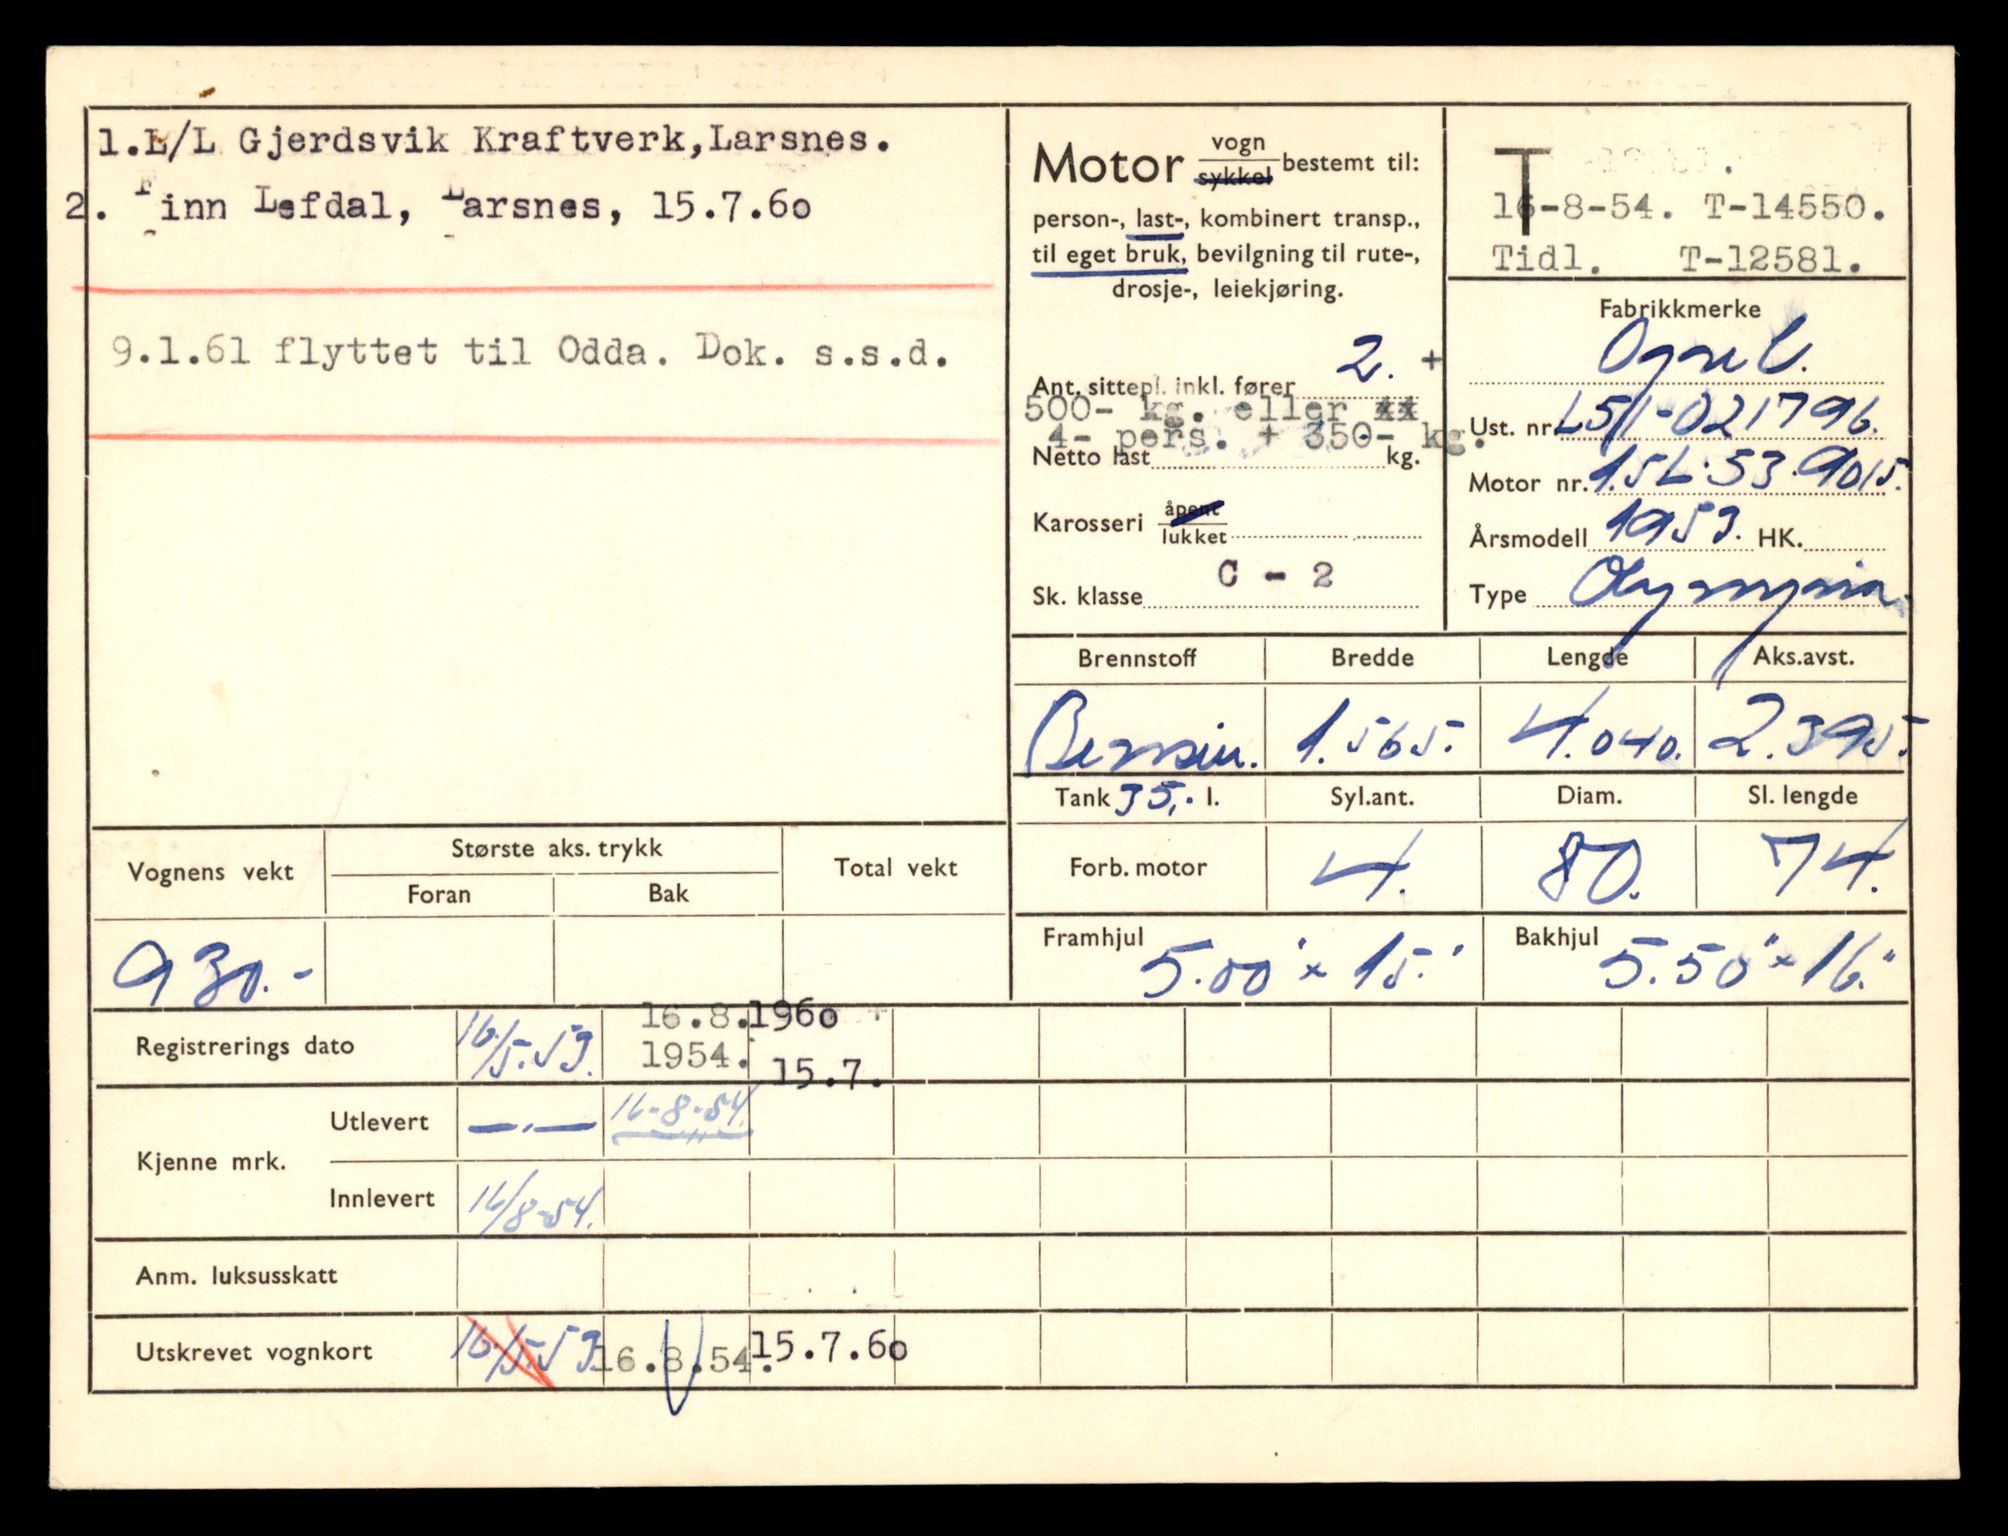 1.L/L Gjerdsvik Kraftverk,Larsnes.
2. Finn Lefdal, Larsnes, 15.7.60
9.1.61 flyttet til Odda. Dok. s.s.d.
Motor vogn
sykkel bestemt til:
person-, last-, kombinert transp.,
til eget bruk, bevilgning til rute-,
drosje-, leiekjøring.
Ant. sittepl. inkl. fører 2. +
500- kg. eller
4- pers. + 350- kg.
Netto last kg.
Karosseri åpent
lukket
Sk. klasse C - 2
T
16-8-54. T-14550.
Tidl. T-12581.
Fabrikkmerke
Opel.
Ust. nr. L51-021796.
Motor nr. 1.5L.53.9015.
Årsmodell 1953. HK.
Type Olympia
Brennstoff Bredde Lengde Aks.avst.
Bensin. 1.565. 4.040. 2.395
Tank 35,. l. Syl.ant. Diam. Sl. lengde
Forb. motor 4. 80. 74.
Framhjul 5.00" x 15." Bakhjul 5.50" x 16."
Vognens vekt Største aks. trykk Total vekt
Foran Bak
930.-
Registrerings dato 16/5.53. 16.8. 1960
1954. 15.7.
Kjenne mrk. Utlevert —.— 16-8-54.
Innlevert 16/8-54.
Anm. luksusskatt
Utskrevet vognkort 16/5.53 16.8.54. 15.7.60